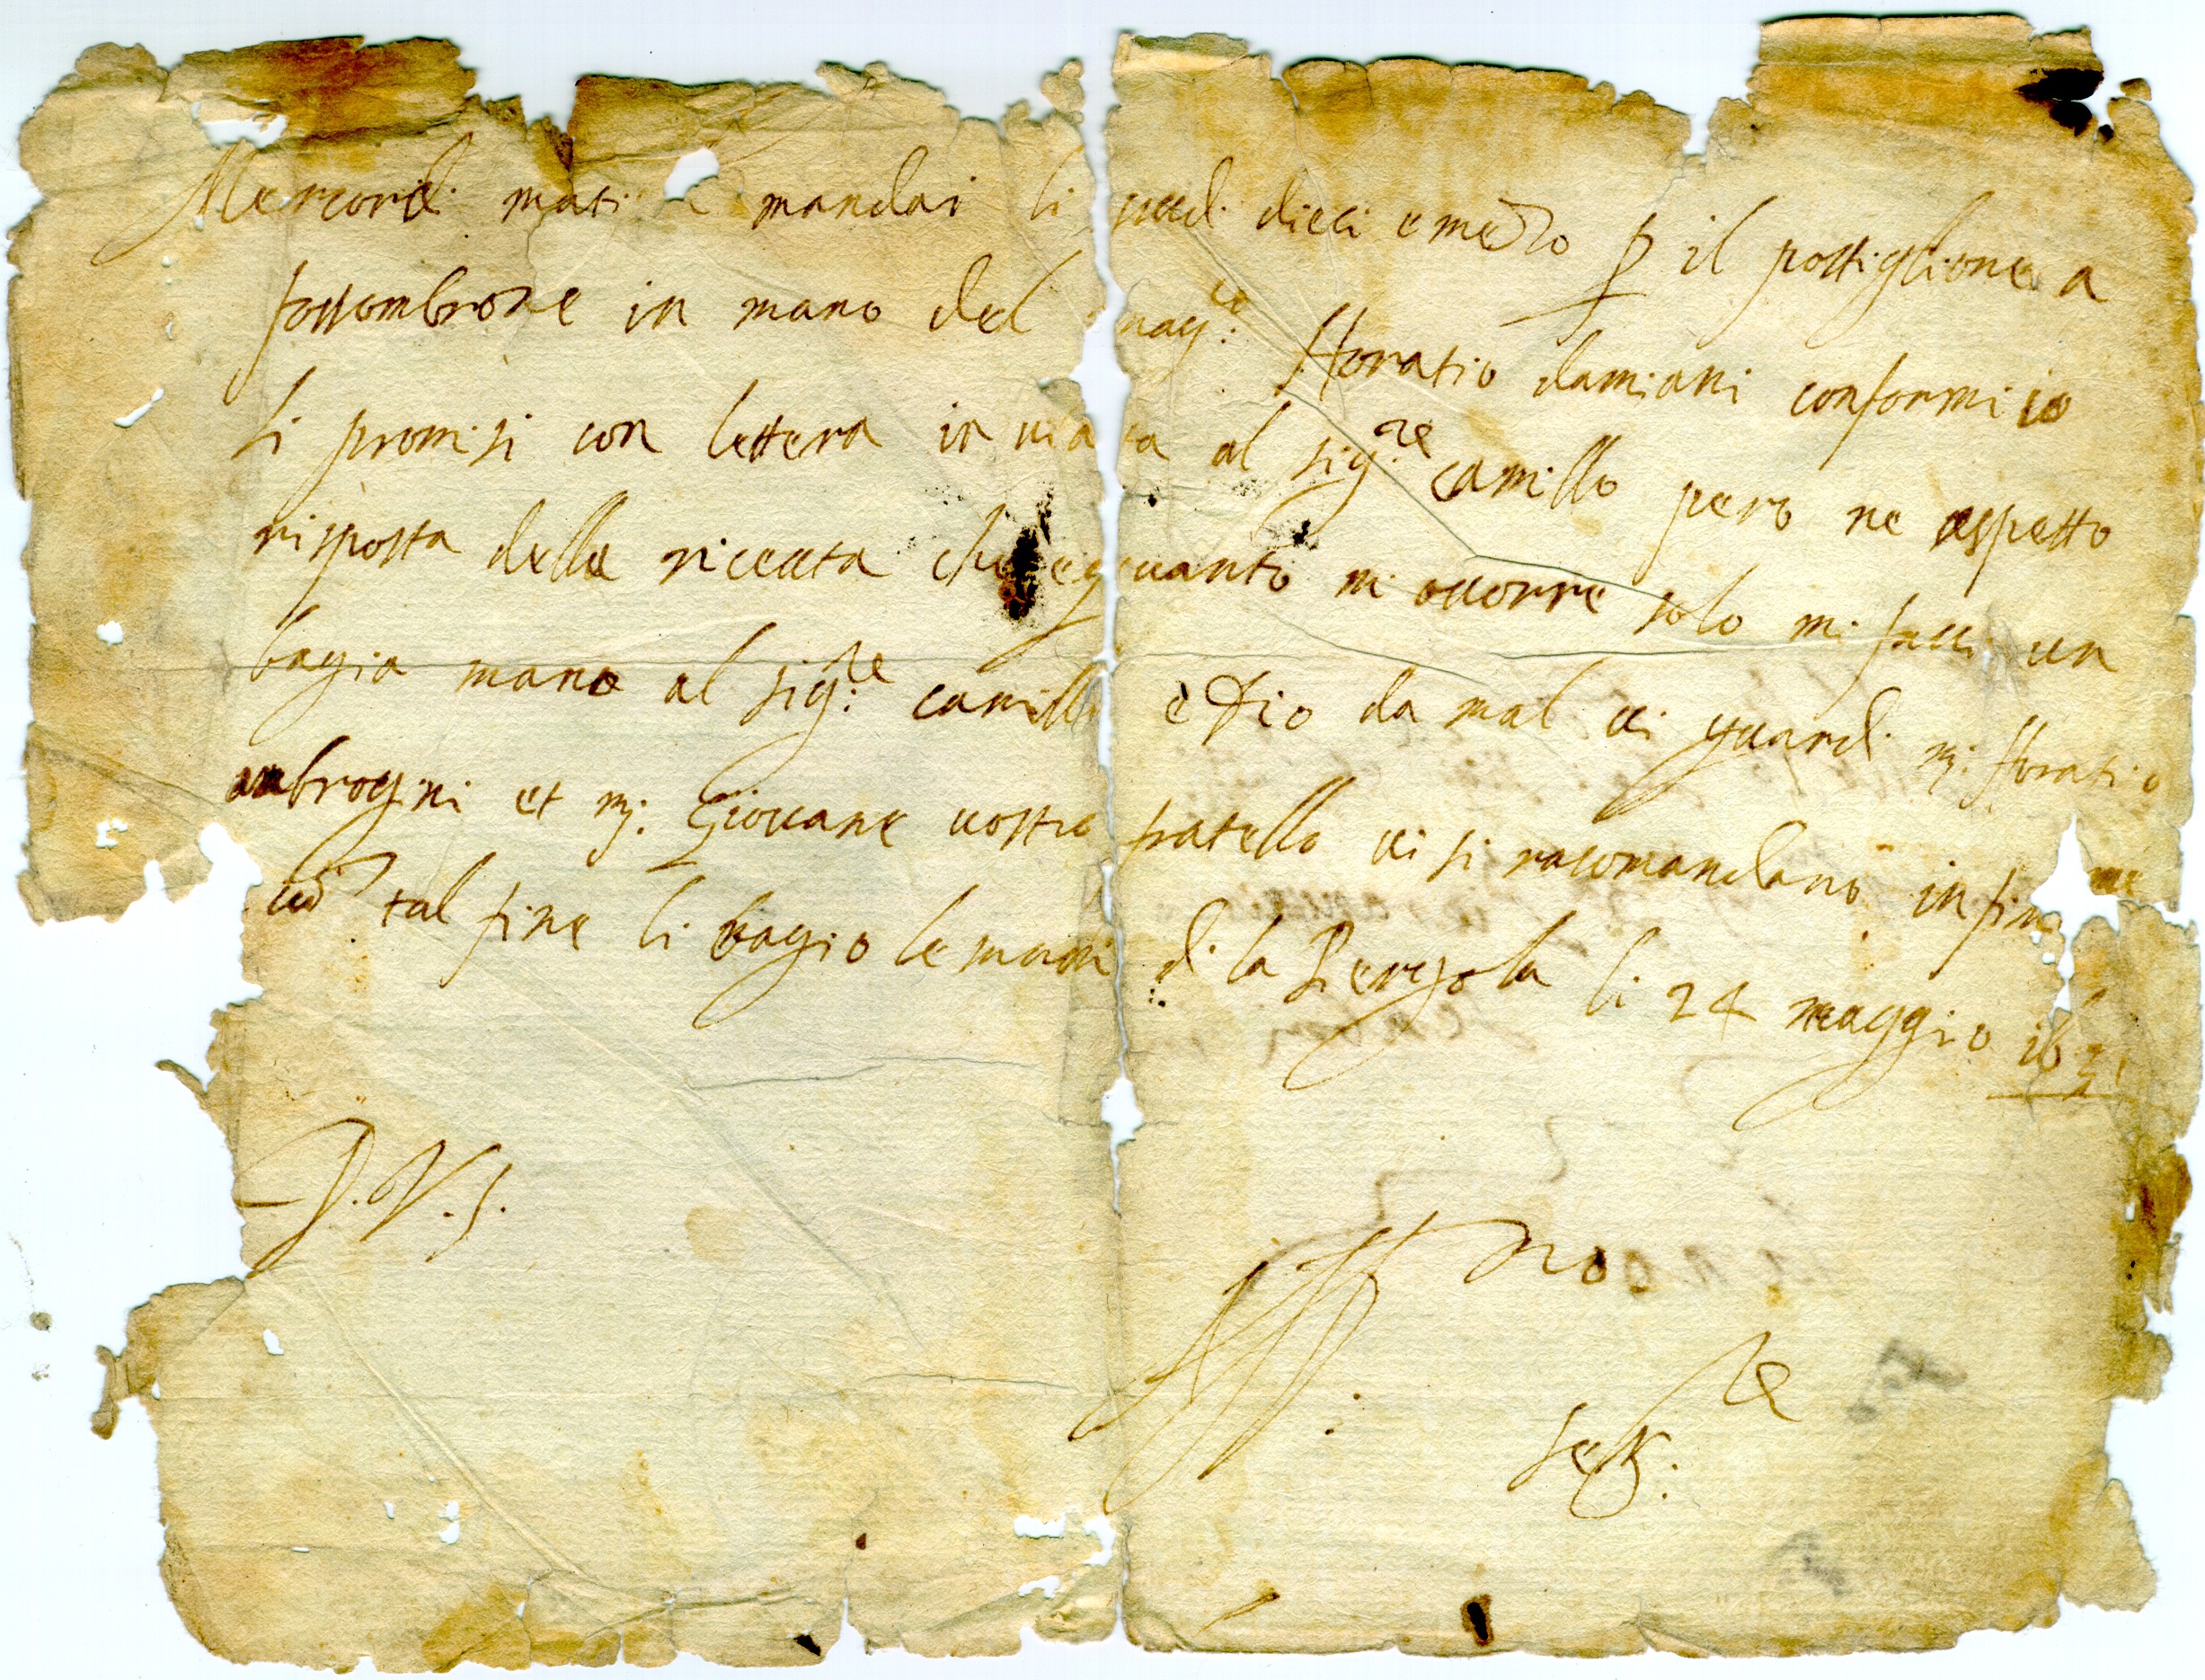 Mercordi mati mandai li scudi dieci e mezo p il postiglione a
fossombrone in mano del mag.co Horatio damiani conformi io
li promisi con lettera inviata al sig.re camillo pero ne aspetto
risposta della riceuta che quanto mi occorre solo mi facci un
bagia mano al sig.re camillo e Dio da mal vi guardi m. Horatio
ambrogini et m. Giovane vostro fratello vi si racomandano infin
tal fine li bagio le mani di la Pergola li 24 maggio
D.V.S.
Aff.no
ser.re